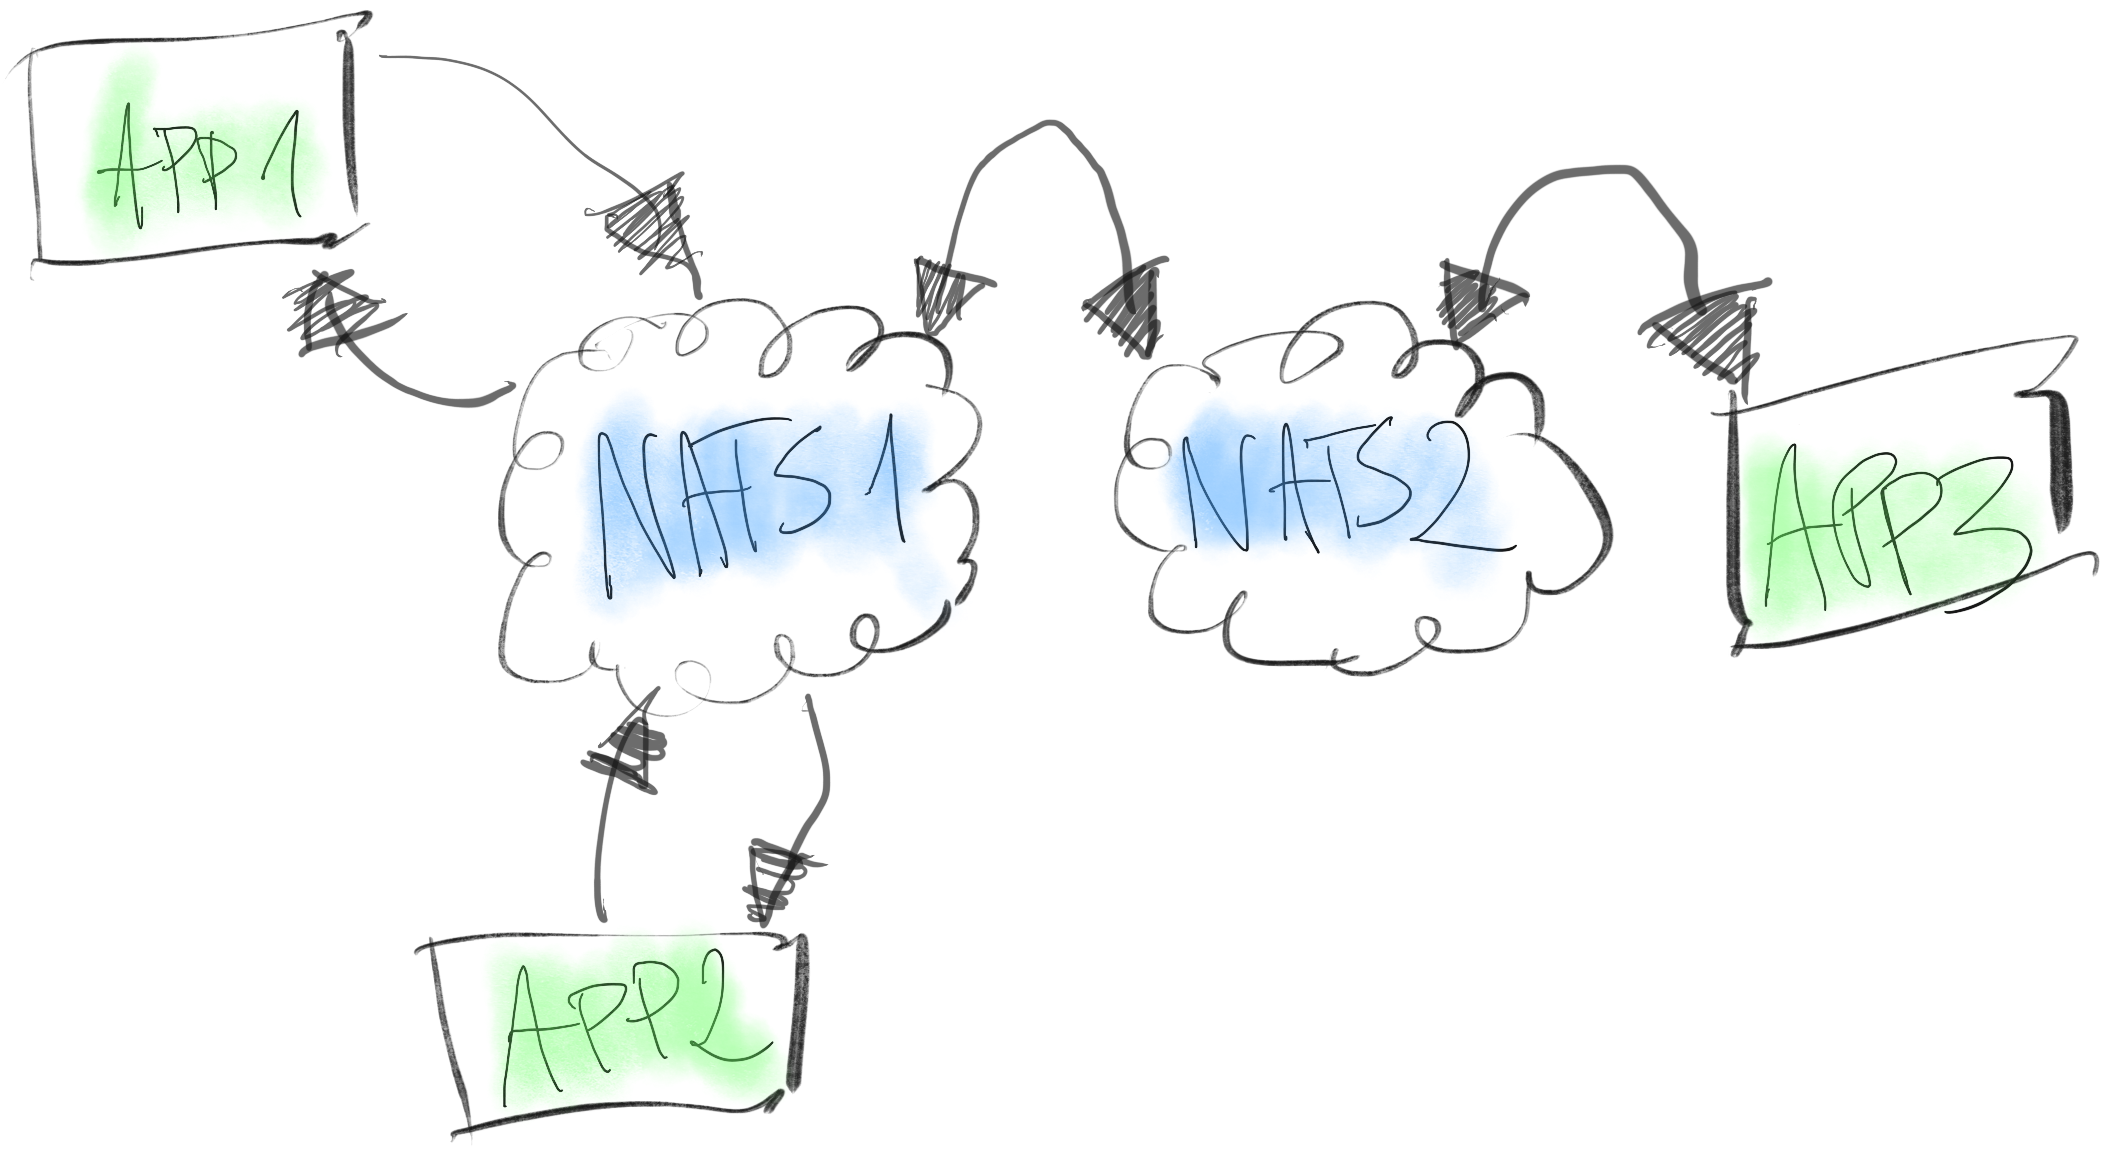 APP 1
NATS 1
NATS2
APP3
APP2